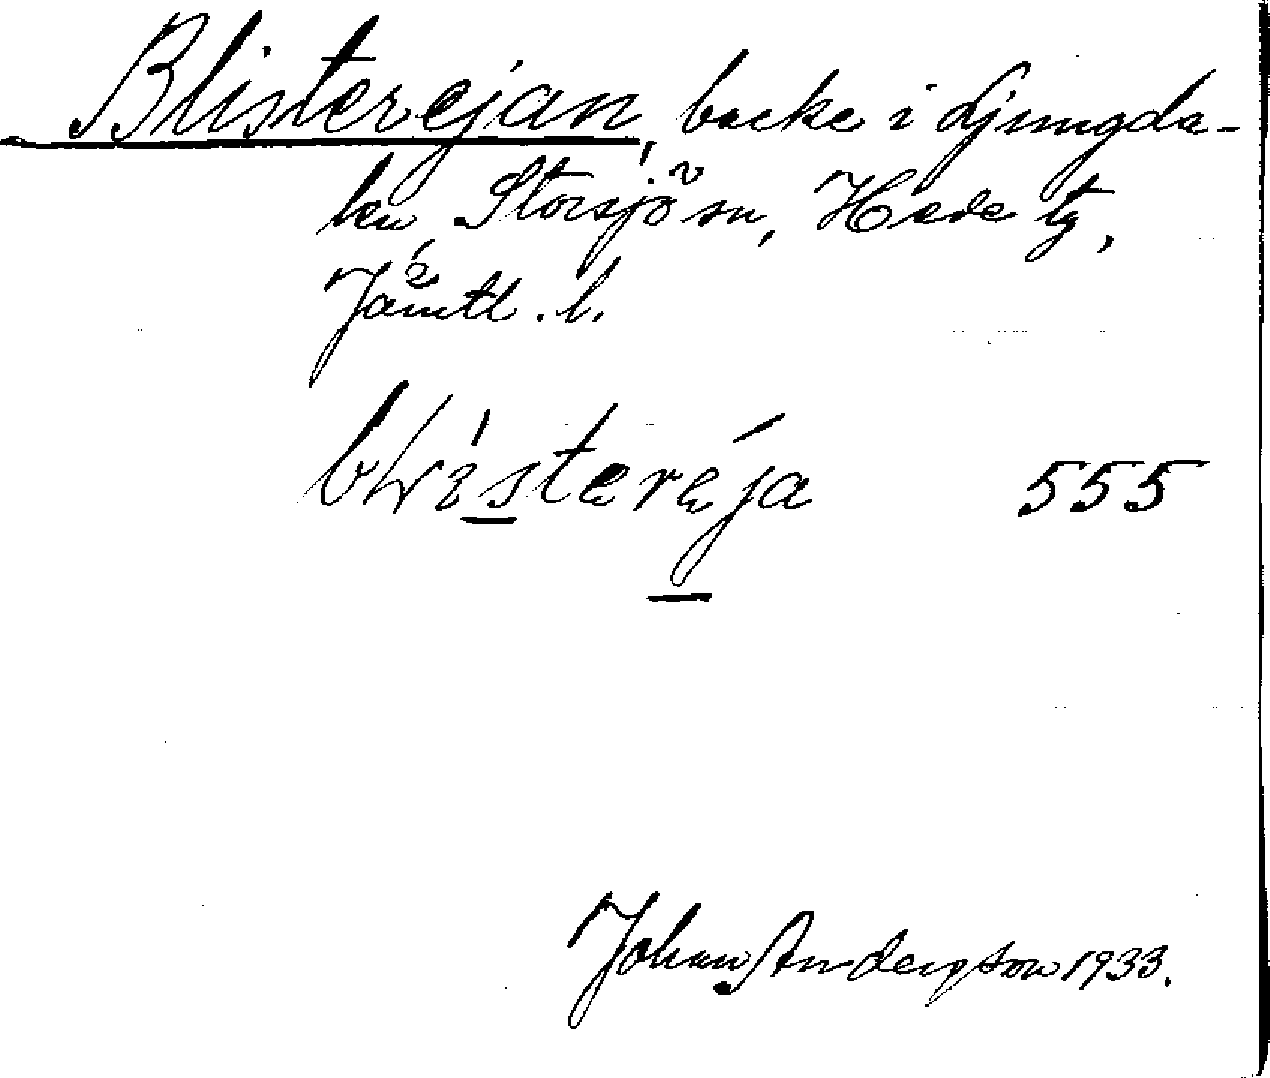 Blisterejan, backe i Ljungda-
len, Storsjö sn, Hede tg,
Jämtl. l.
555
Johan Andersson 1933.